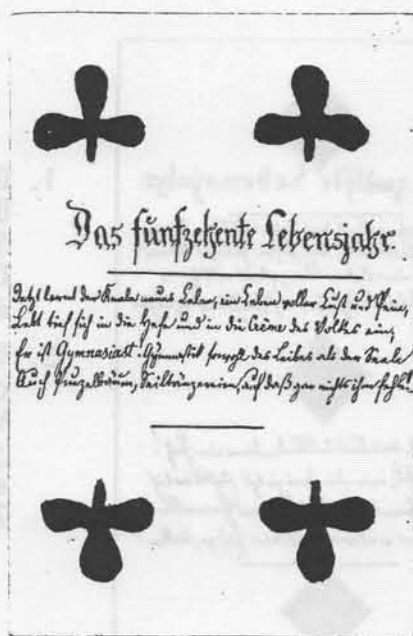 Das fünfzehnte Lebensjahr.
Jetzt lernt der Knabe neues Leben, ein Leben voller Lust und Pein,
Lebt tief sich in die Hefe und in die Crème des Volkes ein,
Er ist Gymnasiast. Gymnastik sowohl des Leibes als der Seele
Auch Purzelbaum, Seiltänzerein, auf daß gar nichts ihm fehle.